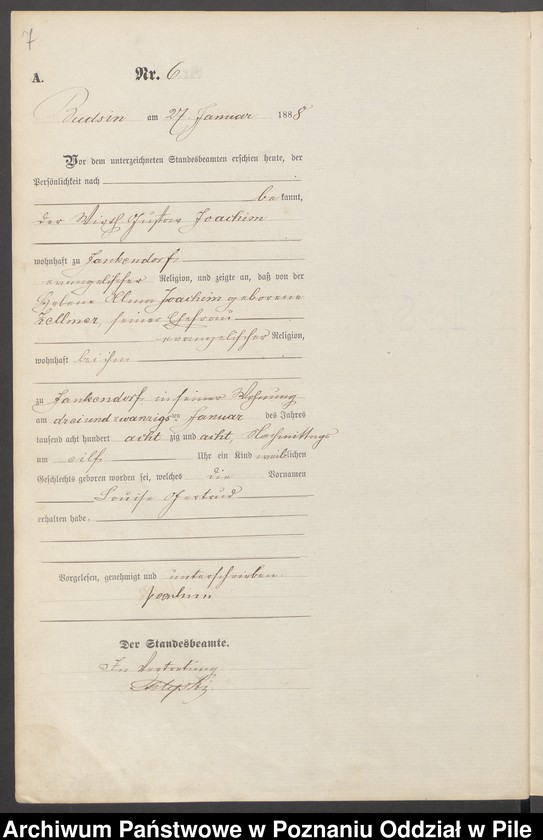 7
A.
Nr. 6
Budsin am 27 Januar 1888
Vor dem unterzeichneten Standesbeamten erschien heute, der
Persönlichkeit nach
be kannt,
der Wirth Gustav Joachim
wohnhaft zu Jankendorf
evangelischer Religion, und zeigte an, daß von der
Helene Alma Joachim geborene
Zellmer, seiner Ehefrau
evangelischer Religion,
wohnhaft bei ihm
zu Jankendorf in seiner Wohnung
am drei und zwanzigs ten Januar des Jahres
tausend acht hundert acht zig und acht, Nachmittags
um eilf Uhr ein Kind weiblichen
Geschlechts geboren worden sei, welches die Vornamen
Louise Gertrud
erhalten habe.
Vorgelesen, genehmigt und unterschrieben
Joachim
Der Standesbeamte.
In Vertretung
Archiwum Państwowe w Poznaniu Oddział w Pile